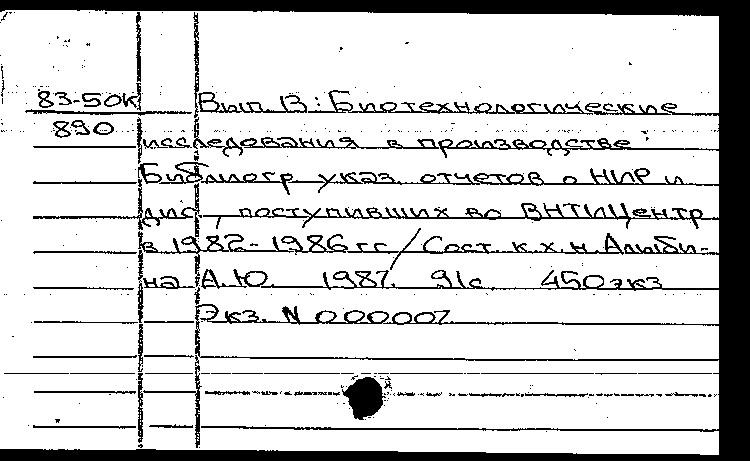 83-50К Вып. 13: Биотехнологические
890 исследования в производстве:
Библиогр указ. отчетов о НИР и
дис., поступивших во ВНТИЦентр
в 1982-1986 гг / Сост. к.х.н. Алыби-
на А.Ю. 1987. 91с. 450 экз
Экз. N 000007